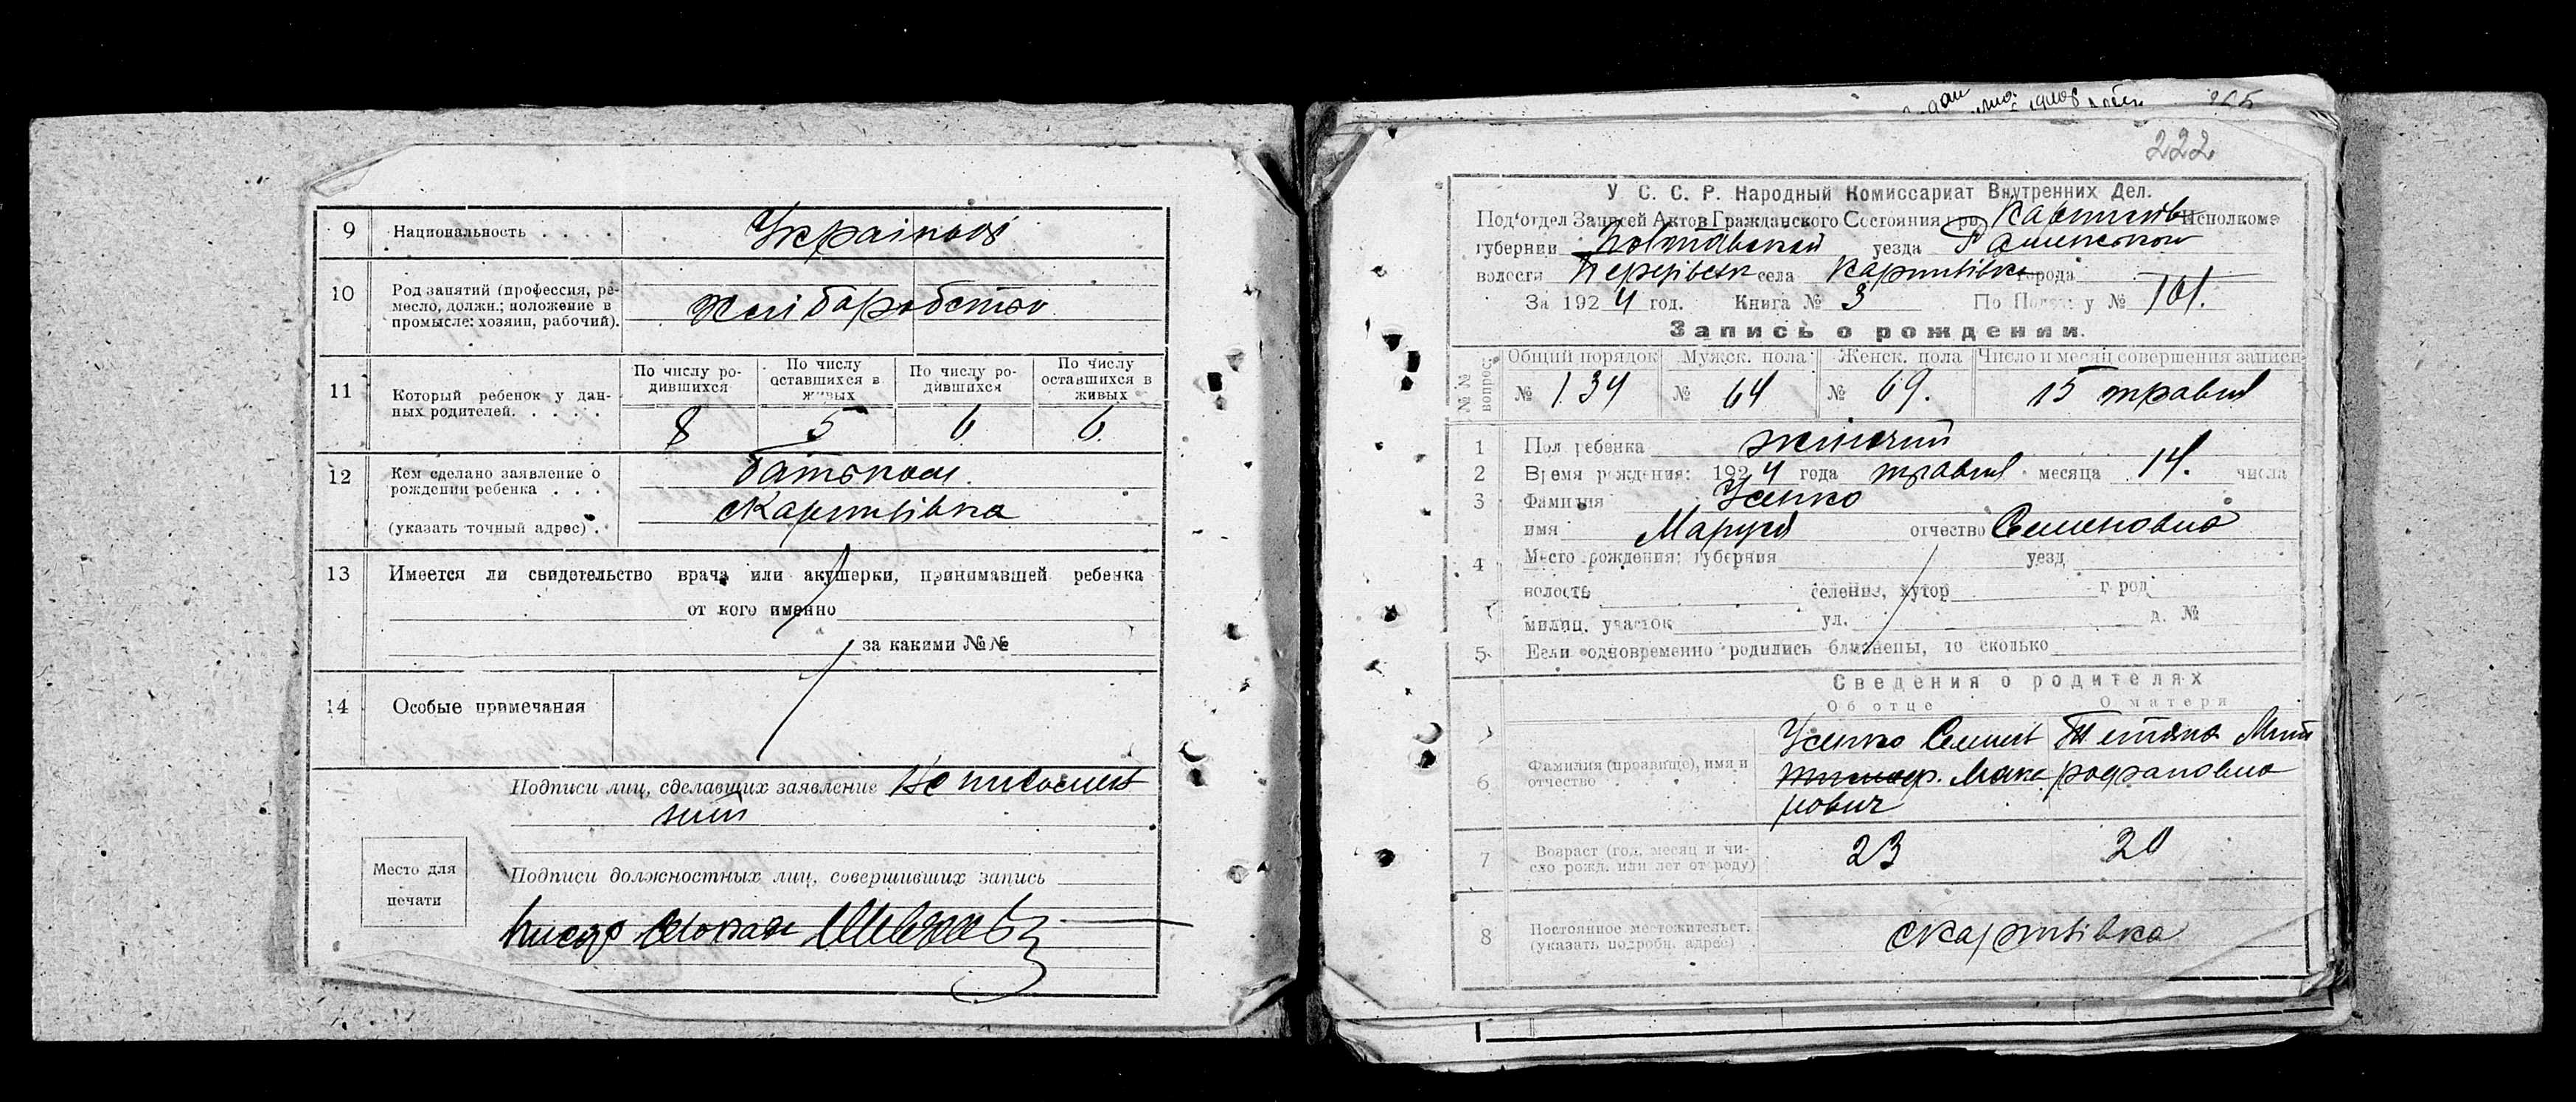 9 Национальность . . . . Українці
10 Род занятий (профессия, ре-
месло, должн.; положение в
промысле: хозяин, рабочий). хліборобство
11 Который ребенок у дан-
ных родителей. . . . .
По числу ро-
дившихся
По числу
оставшихся в
живых
По числу ро-
дившихся
По числу
оставшихся в
живых
8 5 6 6
12 Кем сделано заявление о
рождении ребенка . . . батьком.
(указать точный адрес) . с Карпивівка
13 Имеется ли свидетельство врача или акушерки, принимавшей ребенка
от кого именно
за какими №№
14 Особые примечания
Подписи лиц, сделавших заявление Не письмен
ний
Место для
печати
Подписи должностных лиц, совершивших запись
222
У С. С. Р. Народный Комиссариат Внутренних Дел.
Под'отдел Записей Актов Гражданского Состояния при Исполкоме
губернии Полтавской уезда
волости села города
За 1924 год. Книга № 3 По Полов у № 101.
Запись о рождении.
№№ вопрос.
Общий порядок Мужск. пола Женск. пола Число и месяц совершения записи
№ 134 № 64 № 69. 15 травня
1 Пол ребенка жіночий
2 Время рождения: 1924 года травня месяца 14. числа
3 Фамилия Усенко
имя Маруся отчество Семеновна
4 Место рождения: губерния уезд
волость селение, хутор город
милиц. участок ул. д. №
5 Если одновременно родились близнецы, то сколько
Сведения о родителях
Об отце О матери
6 Фамилия (прозвище), имя и
отчество
Усенко Семен
Мака
рович
Тетяна Мит
рофановна
7 Возраст (год, месяц и чи-
сло рожд. или лет от роду) 23 20
8 Постоянное местожительст.
(указать подробн. адрес) с Карпивівка